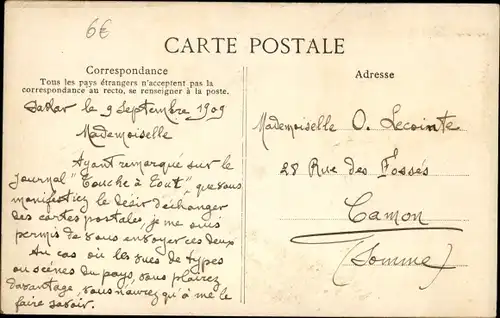 6€
CARTE POSTALE
Correspondance
Tous les pays étrangers n'acceptent pas la
correspondance au recto, se renseigner à la poste.
Dakar le 9 Septembre 1909
Mademoiselle
Ayant remarqué sur le
journal "Touche à Tout", que vous
manifestiez le désir d'échanger
des cartes postales, je me suis
permis de vous envoyer ces deux
Au cas où les vues de types
ou scènes du pays, vous plairez
davantage, vous n'aurez qu'à me le
faire savoir.
Adresse
Mademoiselle O. Lecointe
28 Rue des Fossés
Camon
(Somme)